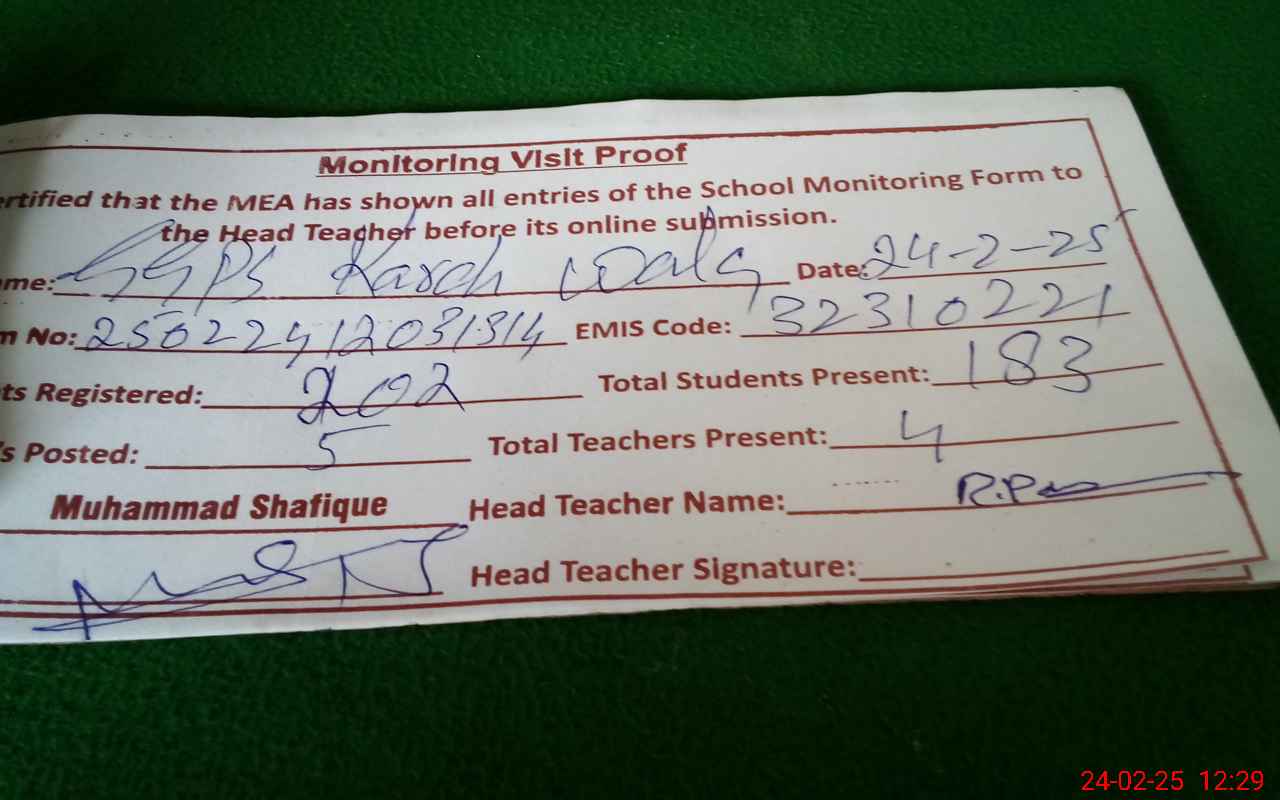 Monitoring Visit Proof
ertified that the MEA has shown all entries of the School Monitoring Form to
the Head Teacher before its online submission.
me: GGPS Karch Wala Date: 24-2-25
m No: 25022412031314 EMIS Code: 32310221
ts Registered: 202 Total Students Present: 183
s Posted: 5 Total Teachers Present: 4
Muhammad Shafique Head Teacher Name:
Head Teacher Signature:
24-02-25 12:29